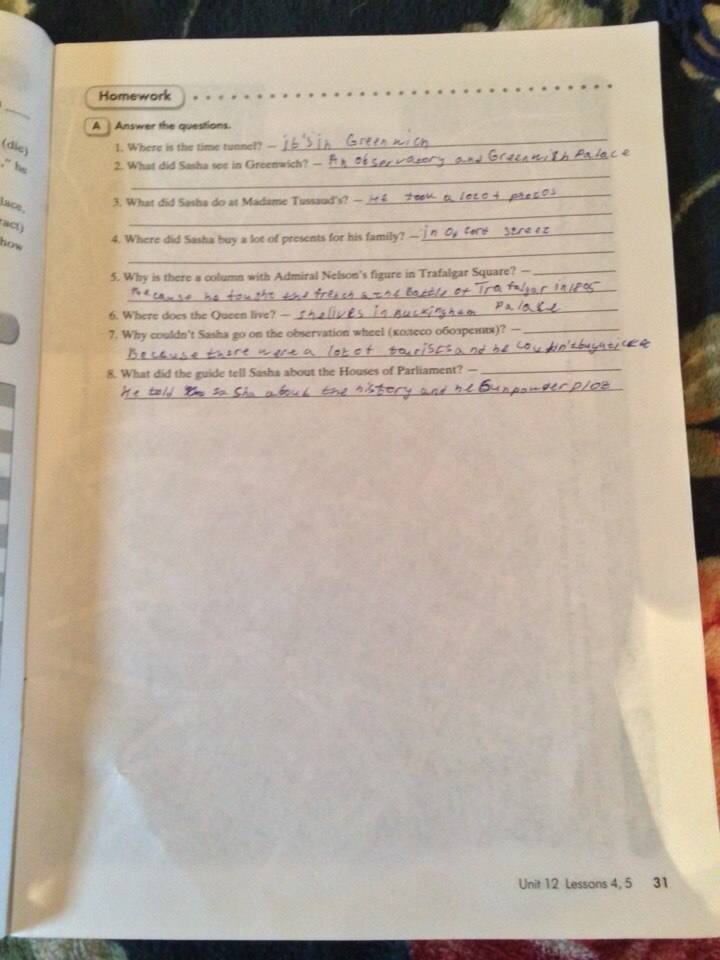 (die)
," he
lace,
ract)
how
Homework
A Answer the questions.
1. Where is the time tunnel? – it's in Greenwich
2. What did Sasha see in Greenwich? – An observatory and Greenwith Palace
3. What did Sasha do at Madame Tussaud's? – He took a lot of photos
4. Where did Sasha buy a lot of presents for his family? – in Oxford Street
5. Why is there a column with Admiral Nelson's figure in Trafalgar Square? –
Because he fought the french the Battle of Trafalgar in 1805
6. Where does the Queen live? – she lives in Buckingham Palace
7. Why couldn't Sasha go on the observation wheel (колесо обозрения)? –
Because there were a lot of tourists and he
8. What did the guide tell Sasha about the Houses of Parliament? –
He told Sasha about the history and he Gunpowder plot
Unit 12 Lessons 4, 5 31